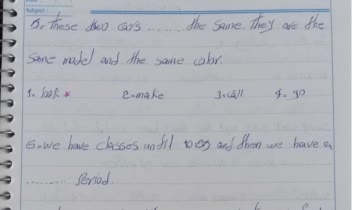 Subject:
5. These two cars ........ the same. They are the
same model and the same color.
1. look * 2-make 3-call 4-go
6-we have classes until 10:00 and then we have a
......... Period.